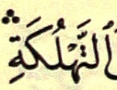 ٱلتَّهْلُكَةِ ۛ